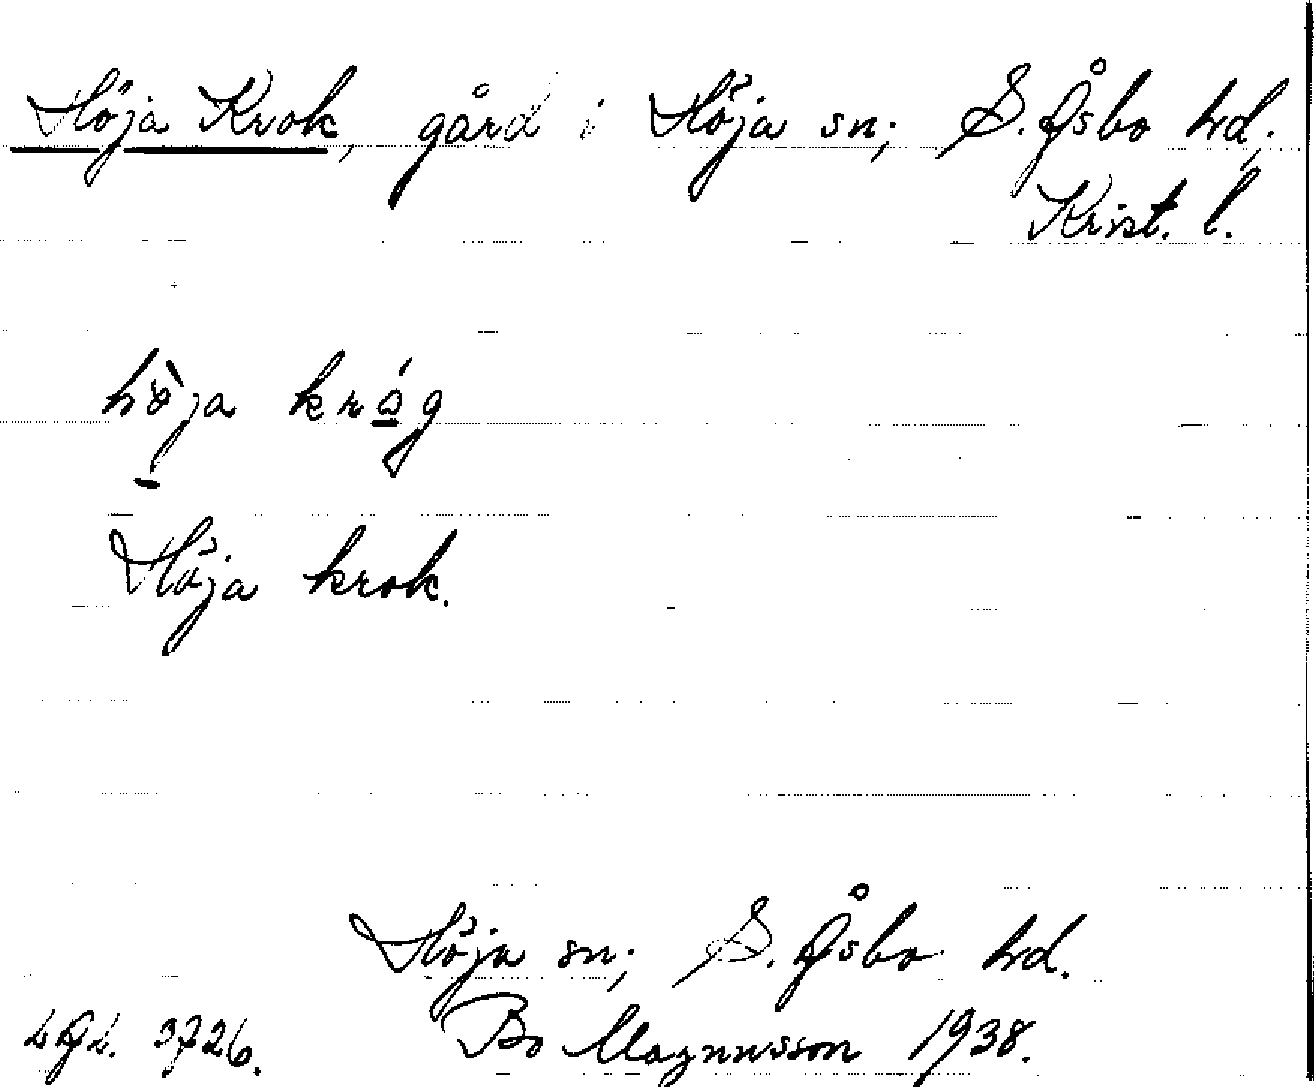 Höja Krok, gård i Höja sn; S. Åsbo hd;
Krist. l.
hö̀ja króg
Höja krok.
Höja sn; S. Åsbo hd.
LAL. 3726. Bo Magnusson 1938.